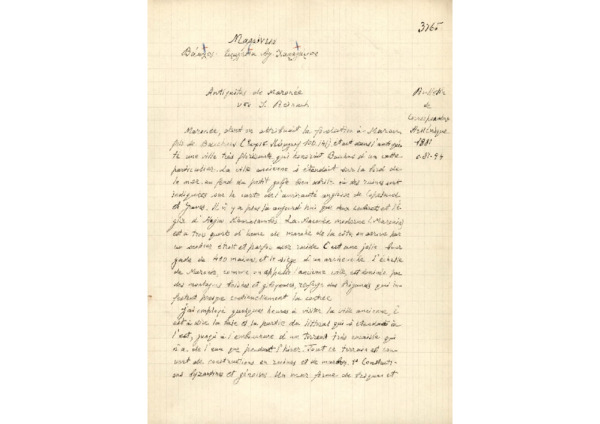 3765
Μαρώνεια
Antiquités de Maronée
υπό S. Reinach
Bulletin
de
Correspondance
Hellénique
1881
σ. 87-94
Maronée, dont on attribuait la fondation à Maron
fils de Bacchus, était dans l'antiqui-
té une ville très florissante qui honorait Bacchus d'un culte
particulier. La ville ancienne s'étendait sur le bord de
la mer, au fond du petit golfe bien où des ruines sont
indiquées sur la carte de l'amirauté anglaise de Copeland
et Graves. Il n'y a plus là aujourd'hui que deux et l'é-
glise d'Agios Haralambos. La Maronée moderne (Maronia)
est à trois quarts d'heure de marche de la côte, on arrive par
un sentier étroit et parfois assez raide. C'est une jolie bour
gade de 400 maisons, et le siège d'un archevêché. L'échelle
de Maronia, comme on appelle l'ancienne ville, est dominée par
des montagnes boisées et giboyeuses, refuge des brigands qui in
festent presque continuellement la contrée.
J'ai employé quelques heures à visiter la ville ancienne, c'
est à dire la base et la partie du littoral qui s'étend de là
l'est, jusqu'à l'embouchure d'un torrent très encaissé qui
n'a de l'eau que pendant l'hiver. Tout ce terrain est cou
vert de constructions en ruines et de marbres. 1° Constructi-
ons byzantines et génoises. Un mur formé de briques et